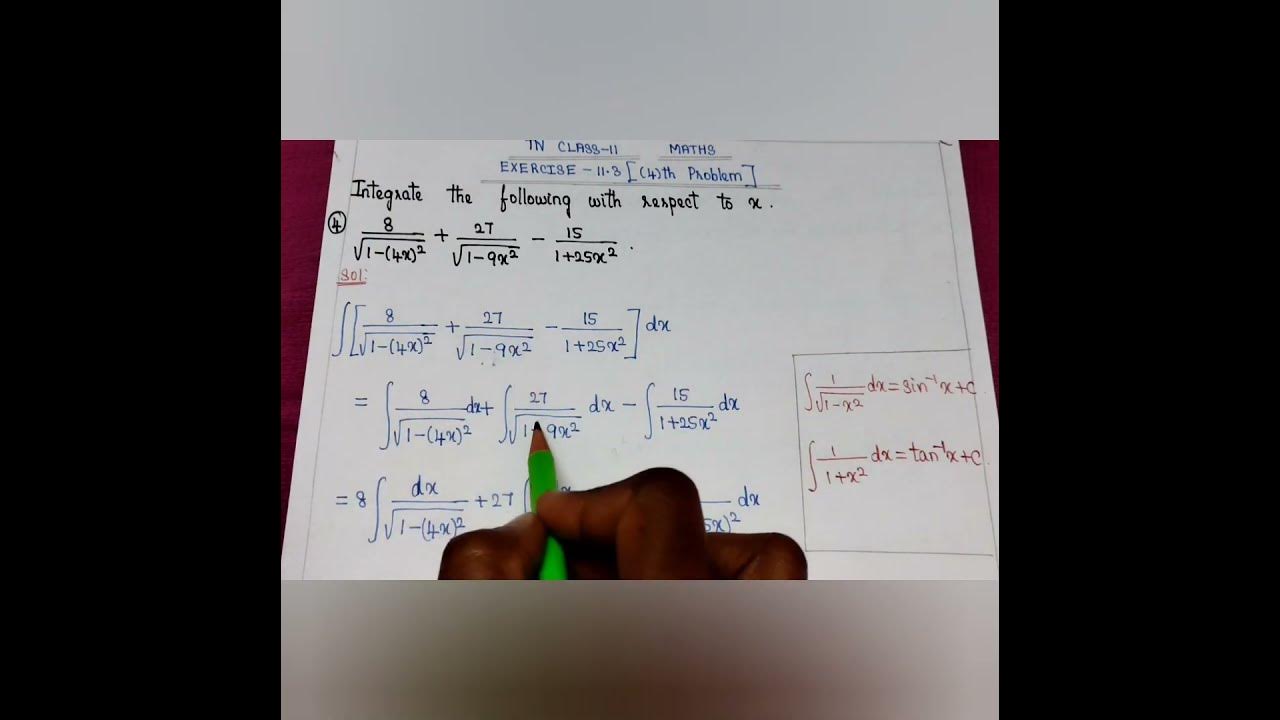 TN CLASS-11 MATHS
EXERCISE - 11.3 [(4)th Problem]
Integrate the following with respect to x.
④ 8/√(1-(4x)²) + 27/√(1-9x²) - 15/(1+25x²).
Sol:
∫[8/√(1-(4x)²) + 27/√(1-9x²) - 15/(1+25x²)] dx
= ∫ 8/√(1-(4x)²) dx + ∫ 27/√(1-9x²) dx - ∫ 15/(1+25x²) dx
= 8 ∫ dx/√(1-(4x)²) + 27 ∫ dx
∫ 1/√(1-x²) dx = sin⁻¹x + C.
∫ 1/(1+x²) dx = tan⁻¹x + C.